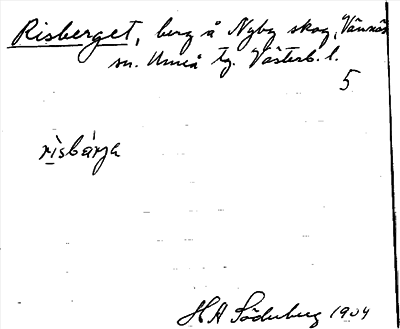 Risberget, berg å Nyby skog, Vännäs
sn. Umeå tg. Västerb. l.
5
rìsbárja
H A Söderberg 1904